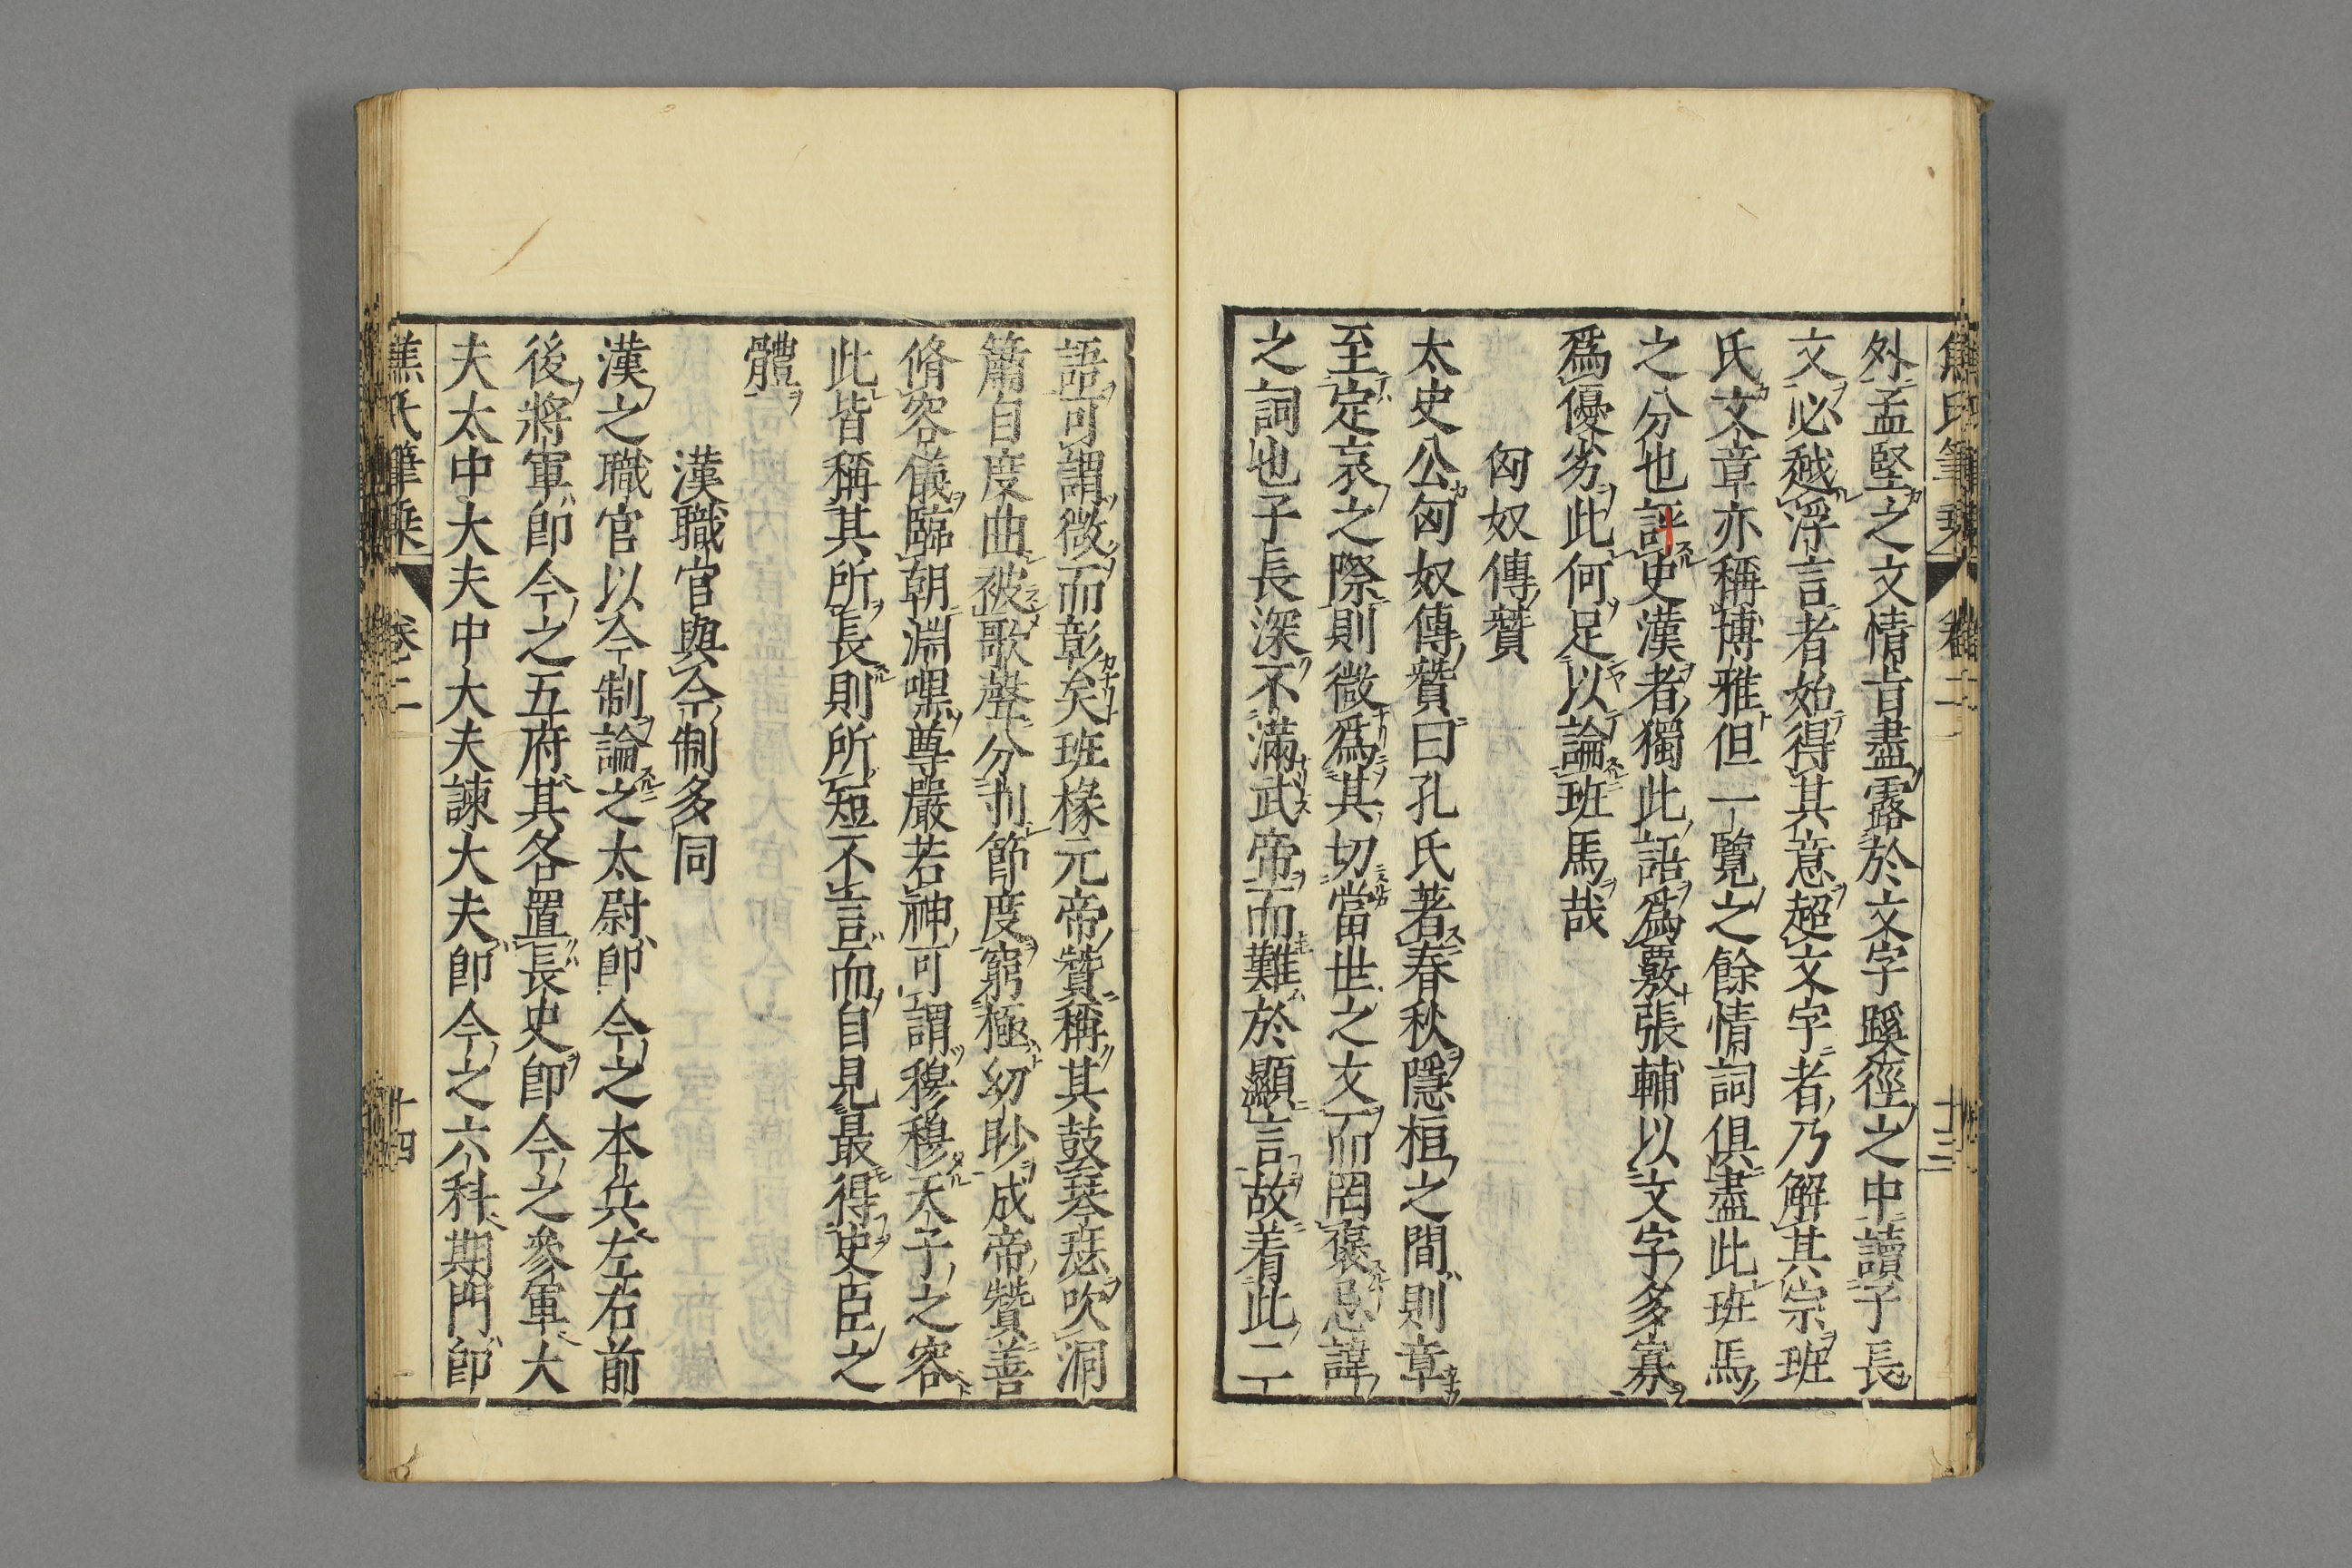 焦氏筆乗 卷二 十三
外孟堅之文情旨盡露於文字蹊徑之中讀子長
文必越浮言者始得其意超文字者乃解其宗班
氏文章亦稱博雅但一覽之餘情詞俱盡此班馬
之分也評史漢者獨此語爲覈張輔以文字多寡
爲優劣此何足以論班馬哉
匈奴傳贊
太史公匈奴傳贊曰孔氏著春秋隱桓之間則章
至定哀之際則微爲其切當世之文而罔褒忌諱
之詞也子長深不滿武帝而難於顯言故着此二
語可謂微而彰矣班椽元帝贊稱其鼓琴瑟吹洞
簫自度曲被歌聲分刌節度窮極幼眇成帝贊善
脩容儀臨朝淵嘿尊嚴若神可謂穆穆天子之容
此皆稱其所長則所短不言而自見最得史臣之
體
漢職官與今制多同
漢之職官以今制論之太尉卽今之本兵左右前
後將軍卽今之五府其各置長史卽今之參軍大
夫太中大夫中大夫諫大夫卽今之六科期門卽
焦氏筆乗 卷二 十四